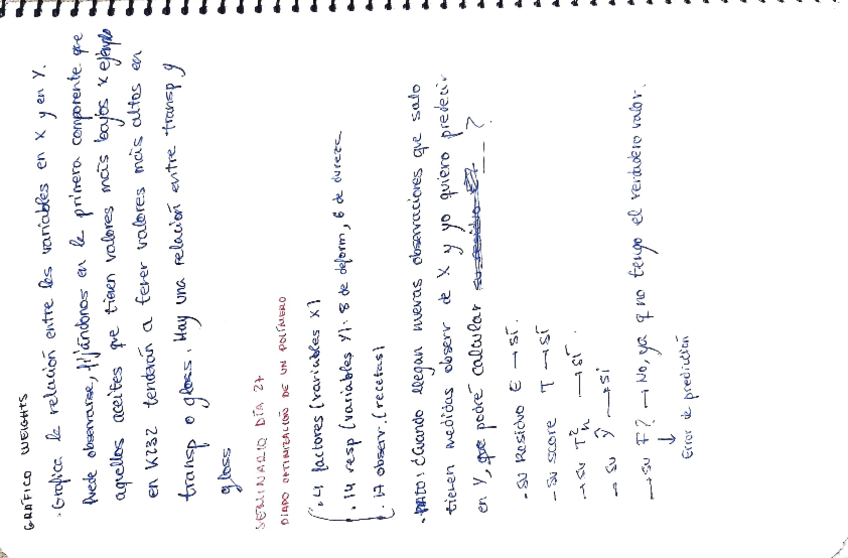 GRÁFICO WEIGHTS
· Grafica la relación entre las variables en X y en Y.
Puede observarse, fijándonos en la primera componente que
aquellos aceites que tienen valores más bajos x ejemplo
en K232 tenderán a tener valores más altos en
transp o gloss. Hay una relación entre transp y
gloss
SEMINARIO DÍA 27
DIAPO OPTIMIZACIÓN DE UN POLÍMERO
· 4 factores (variables X)
· 14 resp (variables Y): 8 de deform, 6 de dureza
· 17 observ. (recetas)
· DATO: ¿Cuando llegan nuevas observaciones que solo
tienen medidas observ de X y yo quiero predecir
en Y, que podré calcular --- ?
- su Residuo E → sí.
- su score T → sí
→ su T²n → sí.
→ su ŷ → sí
→ su F? → No, ya q no tengo el verdadero valor.
↓
Error de predicción